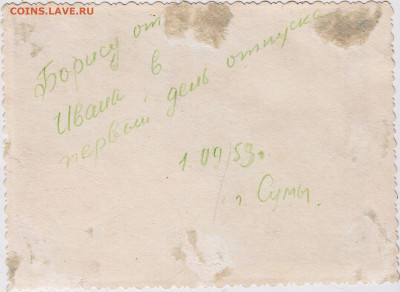 COINS.LAVE.RU
Борису от
Ивана в
первый день отпуска
1.09/53г.
г. Сумы.